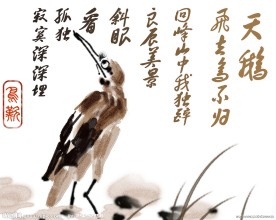 天鹅
飞去为不归
回峰山中我独醉
良辰美景
斜眼
看
孤独
寂寞深深埋